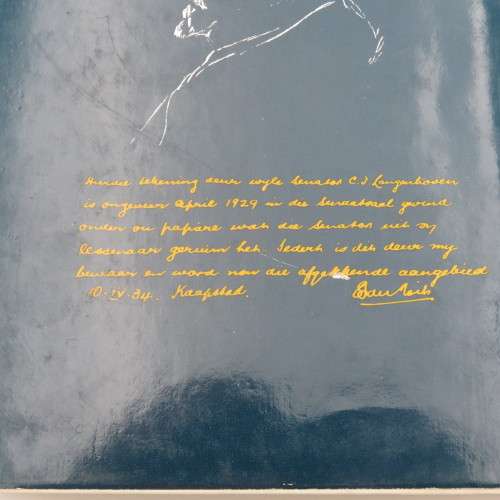 Hierdie tekening deur wyle Senator C.J Langenhoven
is ongeveer April 1929 in die Senaatsaal gevind
onder ou papiere wat die Senator uit sy
lessenaar geruim het. Sedert is dit deur my
bewaar en word nou die afgetekende aangebied
10-IV-34. Kaapstad.